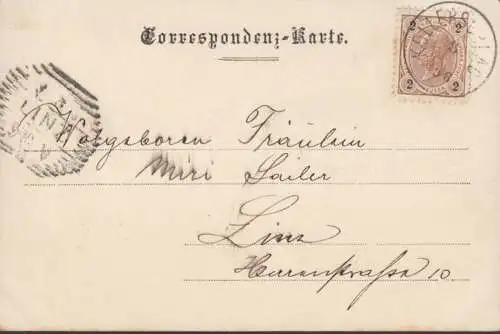 Correspondenz-Karte.
2 2
2 2
LINZ
Wohlgeboren Fräulein
Mini Sailer
Linz
Herrenstraße 10